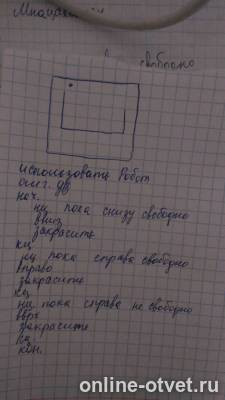 свободно
использовать Робот
алг. дз
нач.
нц пока снизу свободно
вниз
закрасить
кц
нц пока справа свободно
вправо
закрасить
кц
нц пока справа не свободно
вверх
закрасить
кц
кон.
online-otvet.ru